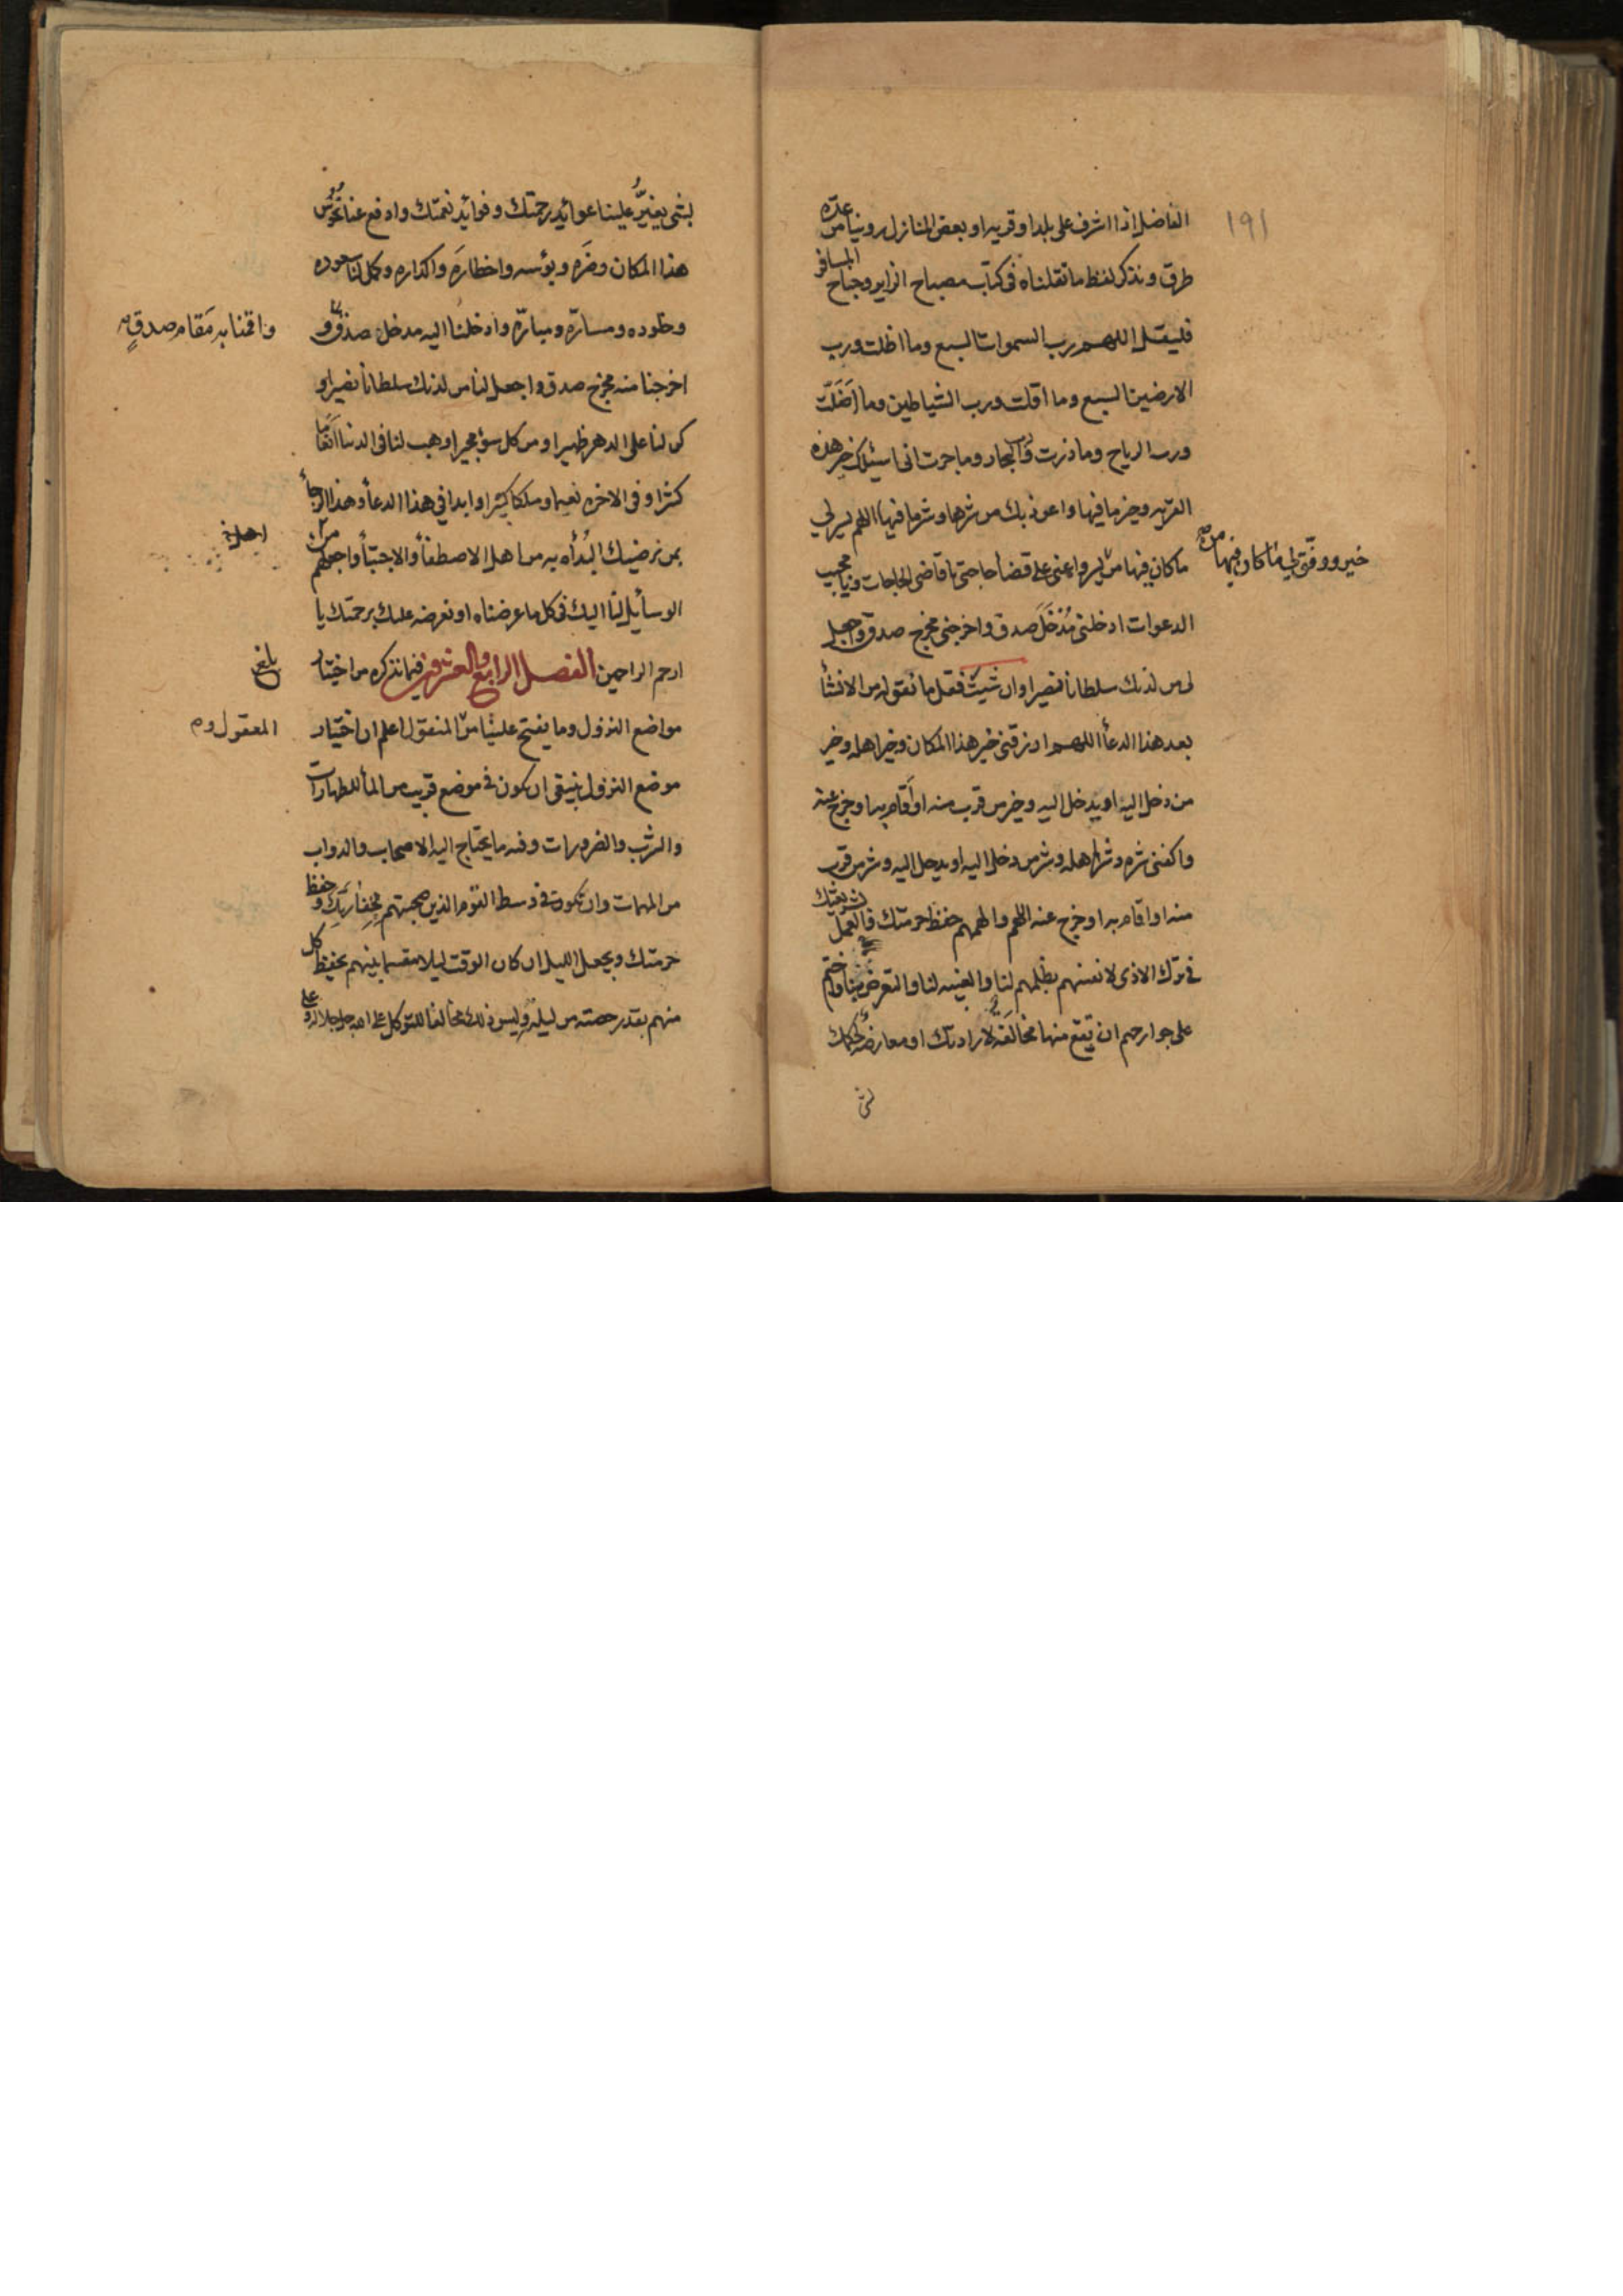 ١٩١
الفاضل اذا اشرف على بلد او قريه او بعض المنازل روينا من عدة
طرق ونذكر لفظ ما نقلناه فى كتاب مصباح الزاير وجناح المسافر
فليقل اللهم رب السموات السبع وما اظلت ورب
الارضين السبع وما اقلت ورب الشياطين وما اَضَلّت
ورب الرياح وما ذرت ورب البحار وما جرت انى اسئلك خير هذه
القريه وخير ما فيها واعوذ بك من شرها وشر ما فيها اللهم يسر لي
ما كان فيها من يسر واعنى على قضأ حاجتى يا قاضى الحاجات ويا مجيب
خير ووفّق لي ما كان فيها من
الدعوات ادخلنى مُدْخَلَ صدق واخرجنى مخرج صدق واجعل
لى من لدنك سلطانا نصيرا وان شيت فقل ما نقوله من الانشأ
بعد هذا الدعأ اللهم ارزقنى خير هذا المكان وخير اهله وخير
من دخل اليه او يدخل اليه وخير من قرب منه او اقام به او خرج عنه
واكفنى شره وشر اهله وشر من دخل اليه او يدخل اليه وشر من قرب
منه او اقام به او خرج عنه اللهم والهمهم حفظ حرمتك والعمل بشريعتك
فى ترك الاذى لا نفسهم بظلمهم لنا والغيبه لنا والتعرض بنا واختم
على جوارحهم ان تقع منها مخالفة لارادتك او معارضه لحكمك
بشى يغيرّ علينا عوائد رحمتك وفوائد نعمتك وادفع عنا نحوس
هذا المكان وضره وبؤسه واخطاره واكداره وكمل لنا سعوده
وخلوده ومسارّه ومبارّه وادخلنا اليه مدخل صدق و
واقمنا به مَقام صدقٍ
اخرجنا منه مخرج صدق واجعل لنا من لدنك سلطانا نصيرا و
كن لنا على الدهر ظهيرا ومن كل سؤ مجيرا وهب لنا فى الدنيا انعاما
كثيرا وفى الاخره نعيما وملكا كبيرا وابدا فى هذا الدعأ وهذا الرجأ
بمن نرضيك البُدأه به من اهل الاصطفأ والاجتبأ واجعلهم من
الوسائل لنا اليك فى كل ما عرضناه او نعرضه عليك برحمتك يا
ارحم الراحمين الفصل الرابع والعشرون فيما نذكره من اختيار
بلغ
مواضع النزول وما يفتح علينا من المنقول اعلم ان اختيار
المعقول و
موضع النزول ينبغى ان يكون فى موضع قريب من المأ للطهارات
والشرب والضرورات وفيه ما يحتاج اليه الاصحاب والدواب
من المهمات وان تكون فى وسط القوم الذين صحبتهم لِخِفارَتِك وحفظ
حرمتك ويجعل الليل ان كان الوقت ليلا مقسما بينهم يحفظ كل
منهم بقدر حصته من ليله وليس ذلك مخالفا للتوكل على الله جل جلاله و